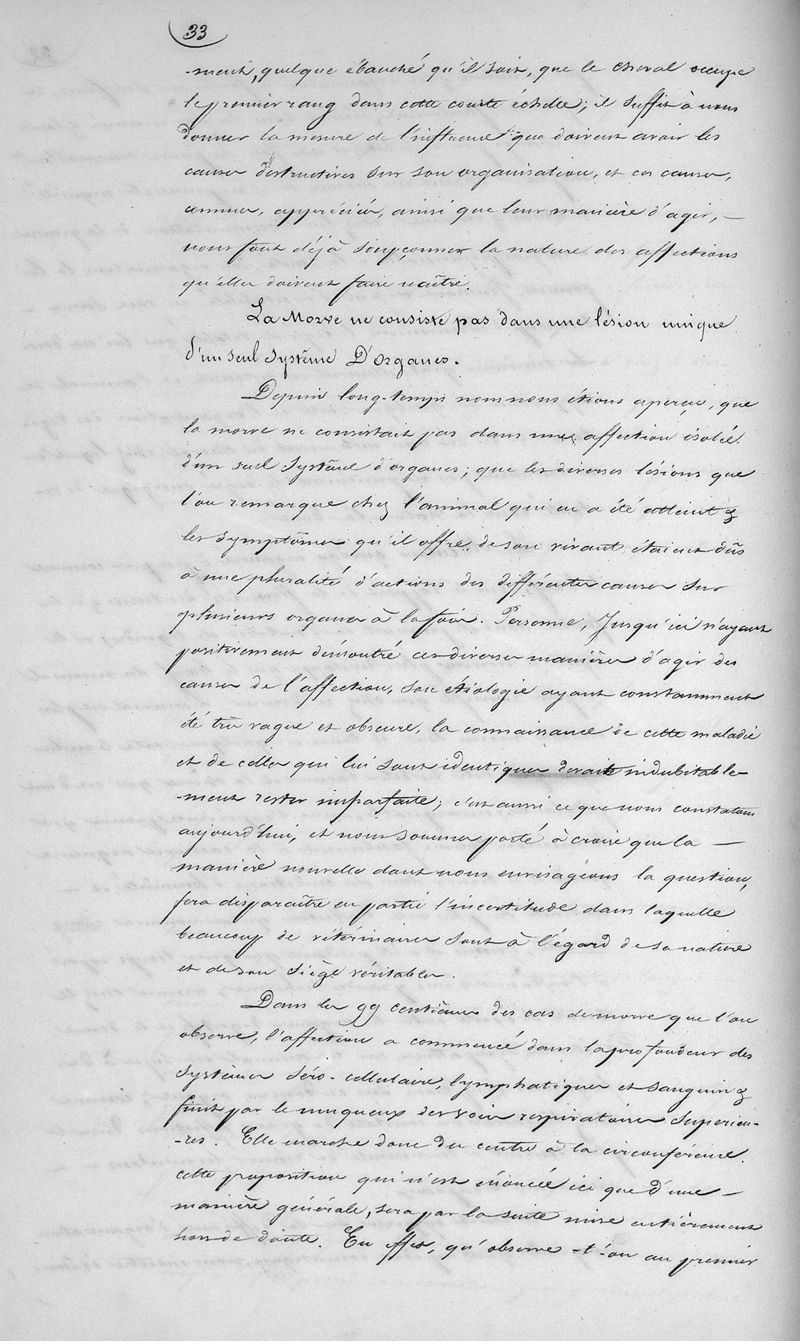 33
-ment, quelque ébauché qu'il soit, que le cheval occupe
le premier rang dans cette courte échelle; il suffit à nous
donner la mesure de l'influence que doivent avoir les
causes destructives sur son organisation, et ces causes,
connues, appréciées, ainsi que leur manière d'agir, —
nous font déjà soupçonner la nature des affections
qu'elles doivent faire naître.
La Morve ne consiste pas dans une lésion unique
d'un seul système D'organes.
Depuis long-temps nous nous étions aperçu, que
la morve ne consistait pas dans une affection isolée
d'un seul système d'organes; que les diverses lésions que
l'on remarque chez l'animal qui en a été atteint &
les symptômes qu'il offre de son vivant, étaient dûs
à une pluralité d'actions des différentes causes sur
plusieurs organes à la fois. Personne, jusqu'ici n'ayant
positivement démontré ces diverses manières d'agir des
causes de l'affection, son étiologie ayant constamment
été très vague et obscure, la connaissance de cette maladie
et de celles qui lui sont identiques devait indubitable-
-ment rester imparfaite; c'est aussi ce que nous constatons
aujourd'hui, et nous sommes porté à croire que la —
manière nouvelle dont nous envisageons la question,
fera disparaître en partie l'incertitude dans laquelle
beaucoup de vétérinaires sont à l'égard de sa nature
et de son siège véritables.
Dans les 99 centièmes des cas de morve que l'on
observe, l'affection a commencé dans la profondeur des
systèmes séro-cellulaire, lymphatiques et sanguins &
finit par le muqueux des voies respiratoires supérieu-
-res. Elle marche donc du centre à la circonférence.
cette proposition qui n'est énoncée ici que d'une —
manière générale, sera par la suite mise entièrement
hors de doute. En effet, qu'observe-t-on au premier